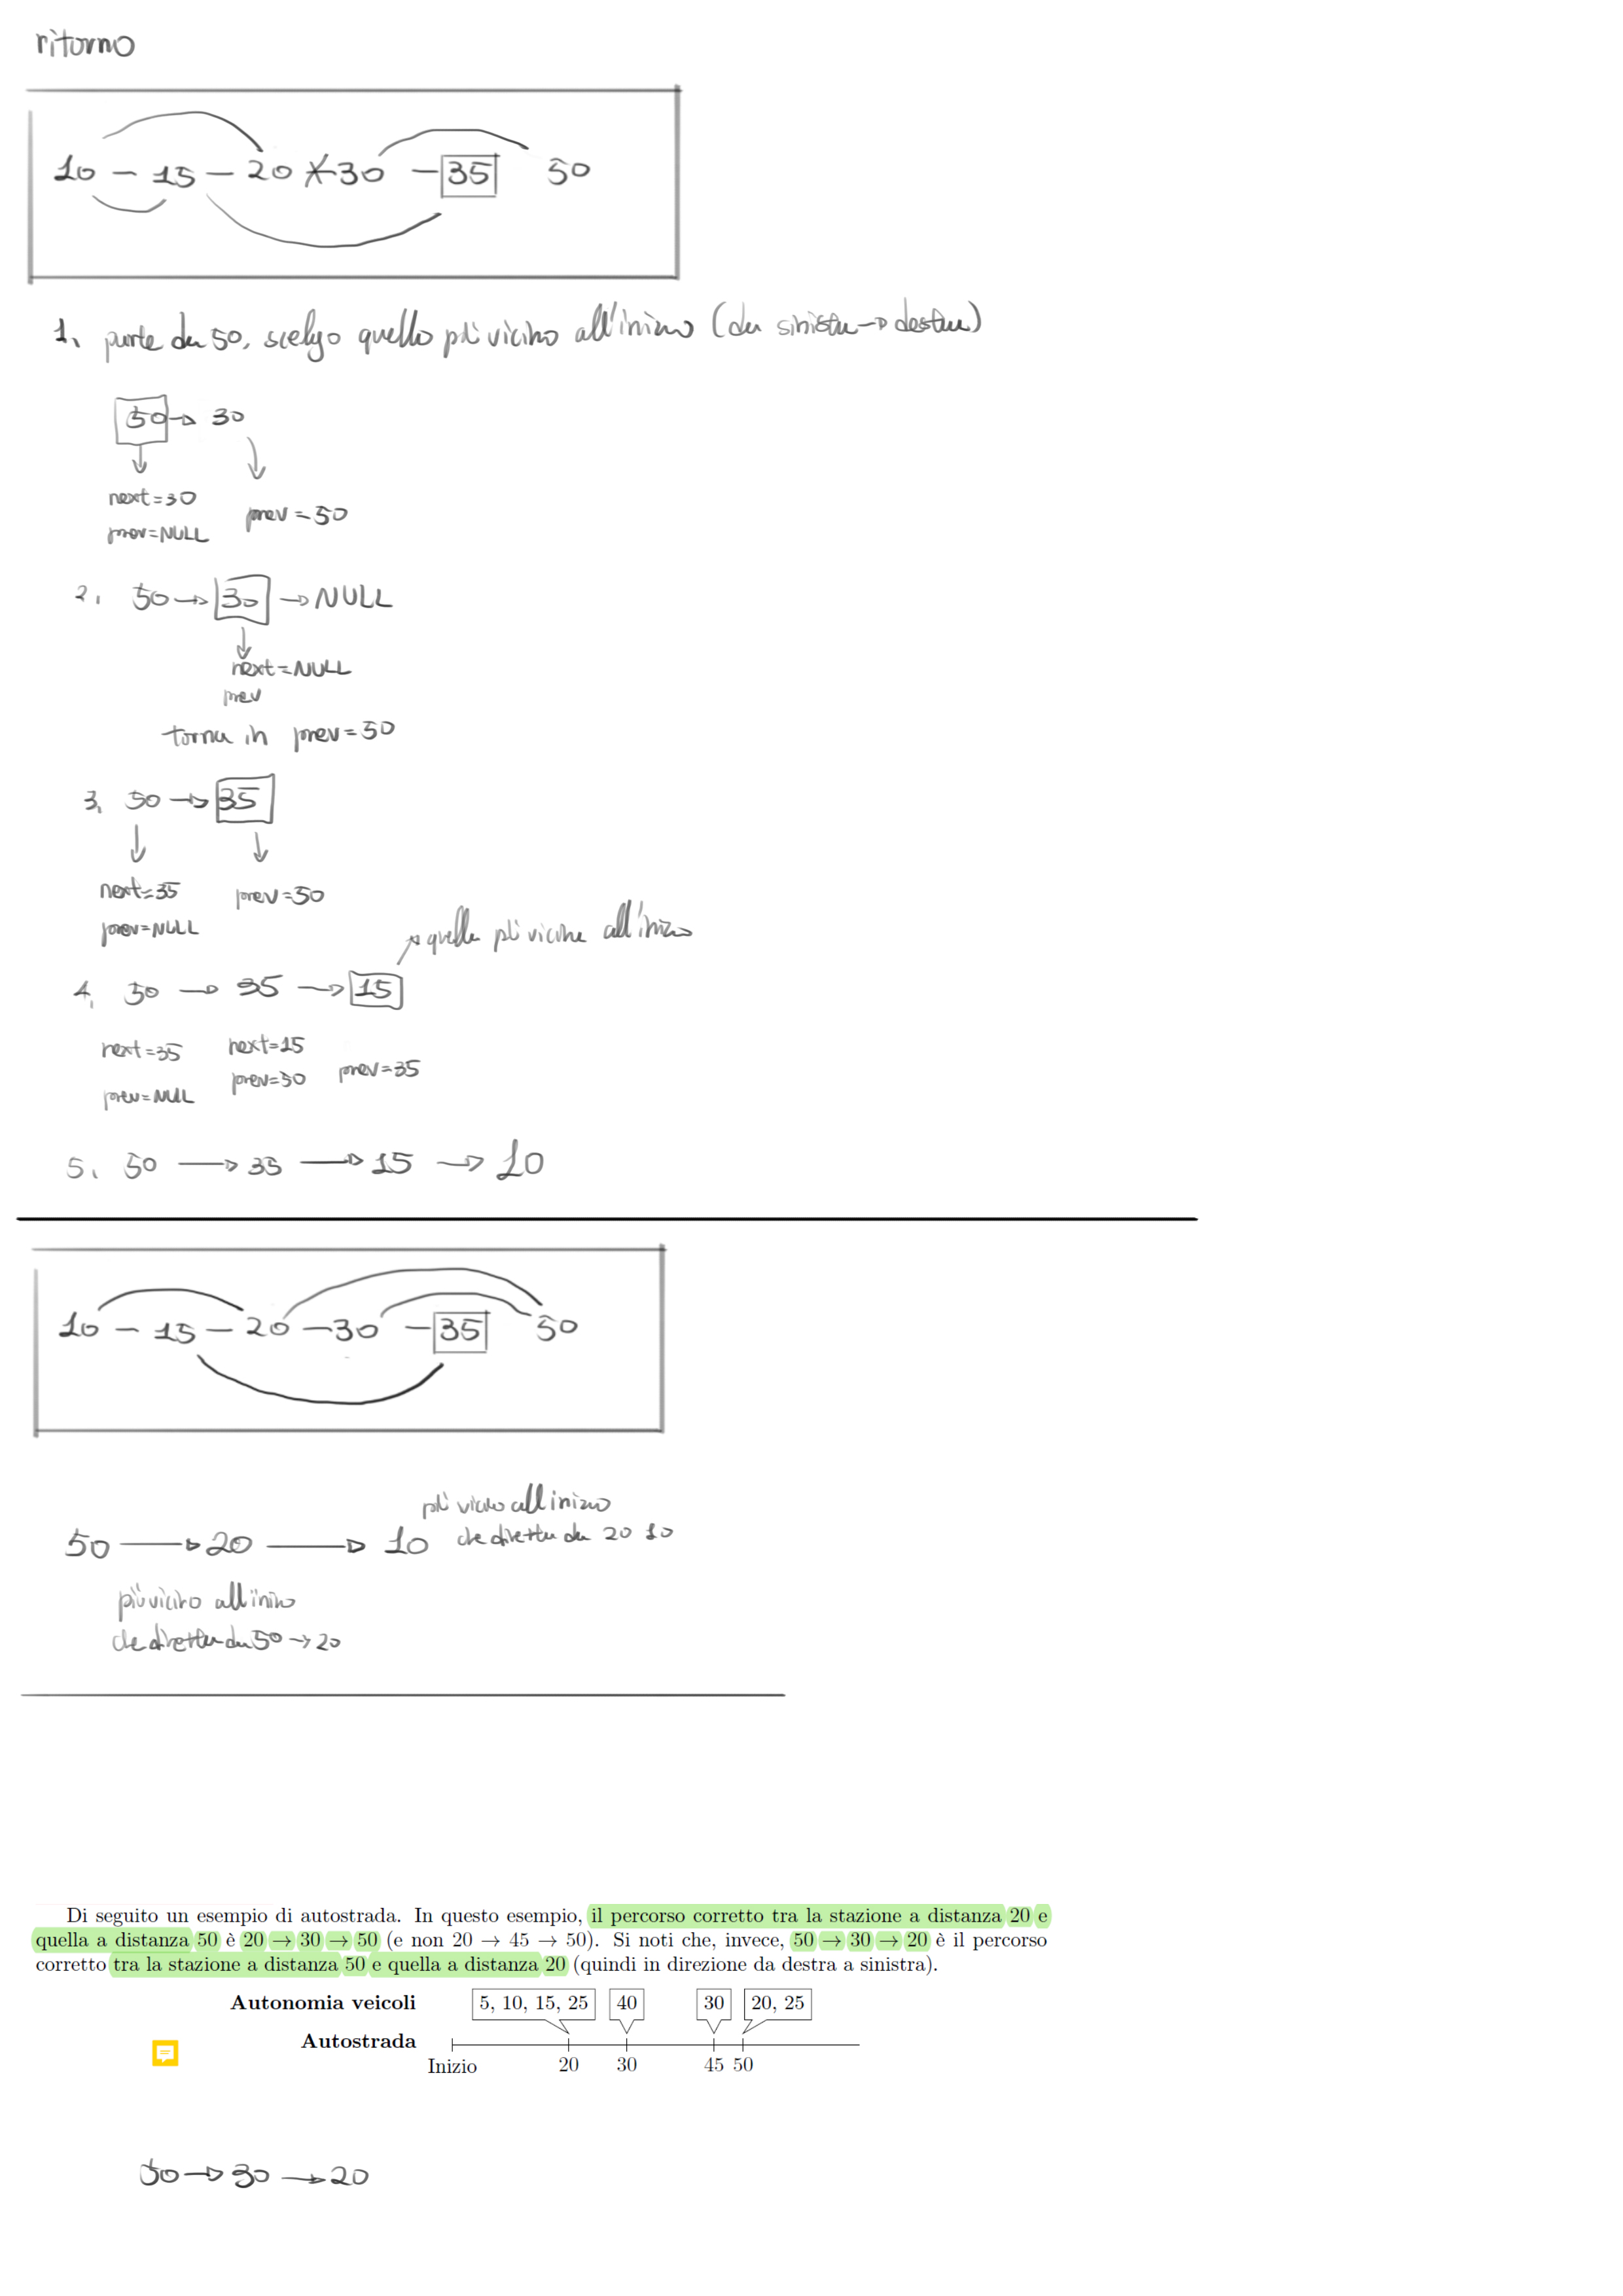 ritorno
10 - 15 - 20 - 30 - 35 50
1. parte da 50, scelgo quello più vicino all'inizio (da sinistra → destra)
50 → 30
next=30
prev=NULL
prev=50
2. 50 → 30 → NULL
next=NULL
prev
torna in prev=50
3. 50 → 35
next=35
prev=NULL
prev=50
quella più vicina all'inizio
4. 50 → 35 → 15
next=35
prev=NULL
next=15
prev=50
prev=35
5. 50 → 35 → 15 → 10
10 - 15 - 20 - 30 - 35 50
più vicino all'inizio
50 → 20 → 10
che diretta da 20 10
più vicino all'inizio
che diretta da 50 → 20
Di seguito un esempio di autostrada. In questo esempio, il percorso corretto tra la stazione a distanza 20 e
quella a distanza 50 è 20 → 30 → 50 (e non 20 → 45 → 50). Si noti che, invece, 50 → 30 → 20 è il percorso
corretto tra la stazione a distanza 50 e quella a distanza 20 (quindi in direzione da destra a sinistra).
Autonomia veicoli 5, 10, 15, 25 40 30 20, 25
Autostrada
Inizio 20 30 45 50
50 → 30 → 20